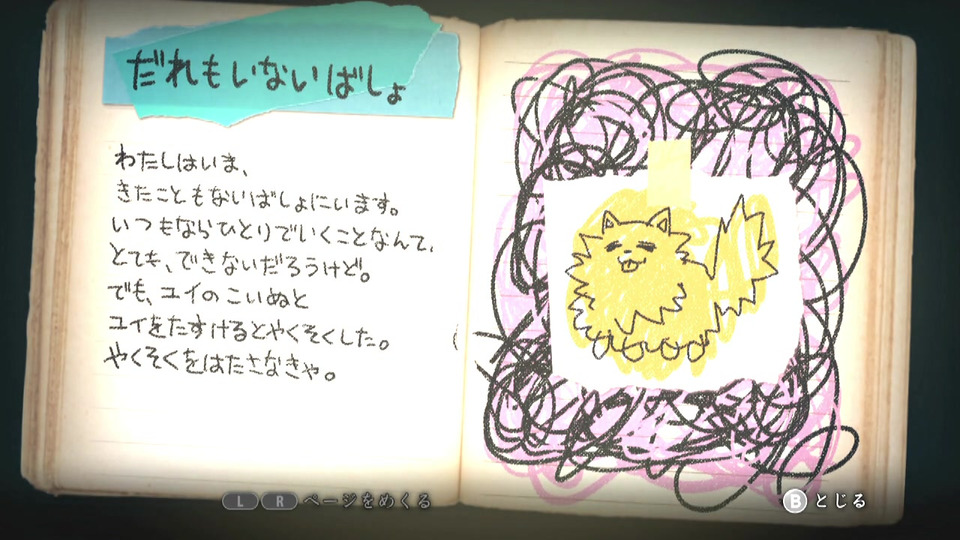 だれもいないばしょ
わたしはいま、
きたこともないばしょにいます。
いつもならひとりでいくことなんて、
とても、できないだろうけど。
でも、ユイのこいぬと
ユイをたすけるとやくそくした。
やくそくをはたさなきゃ。
L R ページをめくる
B とじる